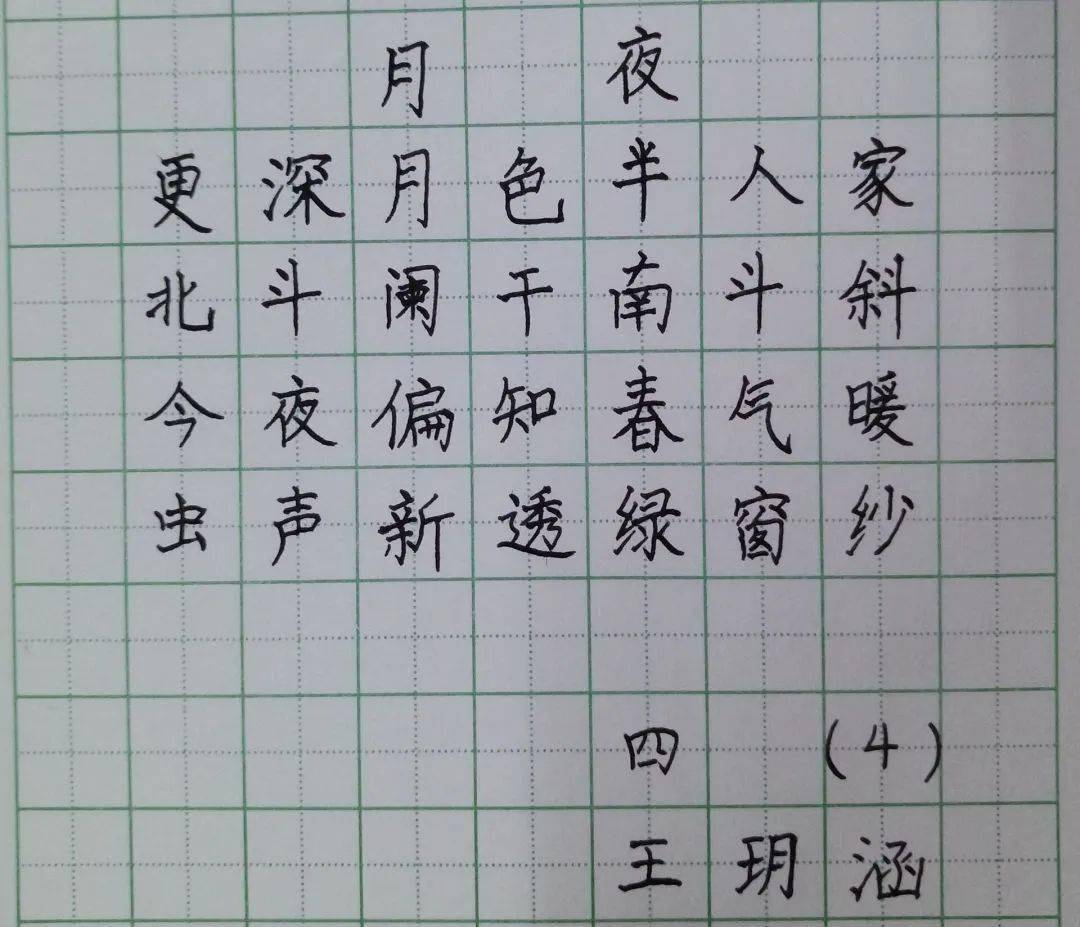 月夜
更深月色半人家
北斗阑干南斗斜
今夜偏知春气暖
虫声新透绿窗纱
四(4)
王玥涵